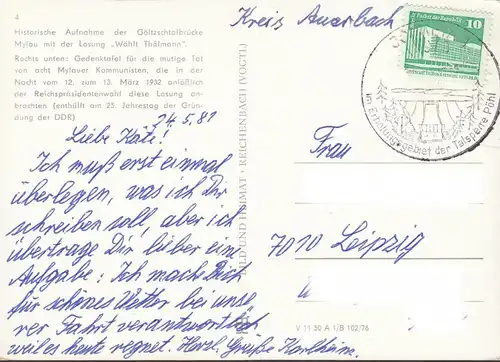 4
Historische Aufnahme der Göltzschtalbrücke
Mylau mit der Losung „Wählt Thälmann".
Rechts unten: Gedenktafel für die mutige Tat
von acht Mylauer Kommunisten, die in der
Nacht vom 12. zum 13. März 1932 anläßlich
der Reichspräsidentenwahl diese Losung an-
brachten (enthüllt am 25. Jahrestag der Grün-
dung der DDR)
24.5.81
Liebe Käte!
Ich muß erst einmal
überlegen, was ich Dir
schreiben soll, aber ich
übertrage Dir lieber eine
Aufgabe: Ich mach Dich
für schönes Wetter bei unse
rer Fahrt verantwortlich,
weil es heute regnet. Herzl. Grüße Karlheinz.
BILD UND HEIMAT · REICHENBACH (VOGTL)
Kreis Auerbach
10
im Erholungsgebiet der Talsperre Pöhl
Frau
7010 Leipzig
V 11 50 A 1/B 102/76